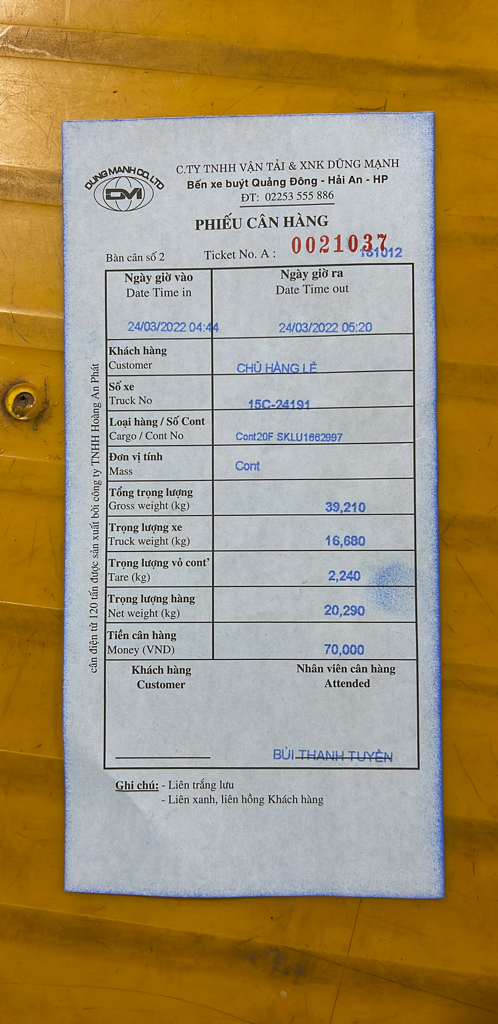 DUNG MANH CO.,LTD
DM
C.TY TNHH VẬN TẢI & XNK DŨNG MẠNH
Bến xe buýt Quảng Đông - Hải An - HP
ĐT: 02253 555 886
PHIẾU CÂN HÀNG
Bàn cân số 2
Ticket No. A : 0021037
181012
Ngày giờ vào
Date Time in
Ngày giờ ra
Date Time out
24/03/2022 04:44
24/03/2022 05:20
Khách hàng
Customer
CHỦ HÀNG LẺ
Số xe
Truck No
15C-24191
Loại hàng / Số Cont
Cargo / Cont No
Cont20F SKLU1662997
Đơn vị tính
Mass
Cont
Tổng trọng lượng
Gross weight (kg)
39,210
Trọng lượng xe
Truck weight (kg)
16,680
Trọng lượng vỏ cont'
Tare (kg)
2,240
Trọng lượng hàng
Net weight (kg)
20,290
Tiền cân hàng
Money (VND)
70,000
Khách hàng
Customer
Nhân viên cân hàng
Attended
BÙI THANH TUYÊN
Ghi chú: - Liên trắng lưu
- Liên xanh, liên hồng Khách hàng
cân điện tử 120 tấn được sản xuất bởi công ty TNHH Hoàng An Phát